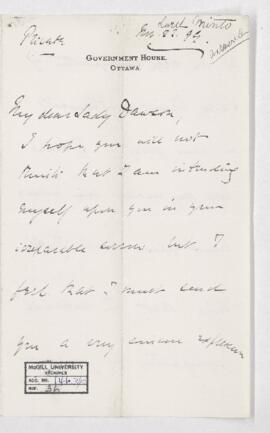 Lord Minto
Private
Nov. 22. 99.
answered
GOVERNMENT HOUSE.
OTTAWA.
My dear Lady Dawson,
I hope you will not
think that I am intruding
myself upon you in your
irreparable sorrow but I
feel that I must send
you a very sincere expression
McGILL UNIVERSITY
ARCHIVES
ACC. NO.
REF.